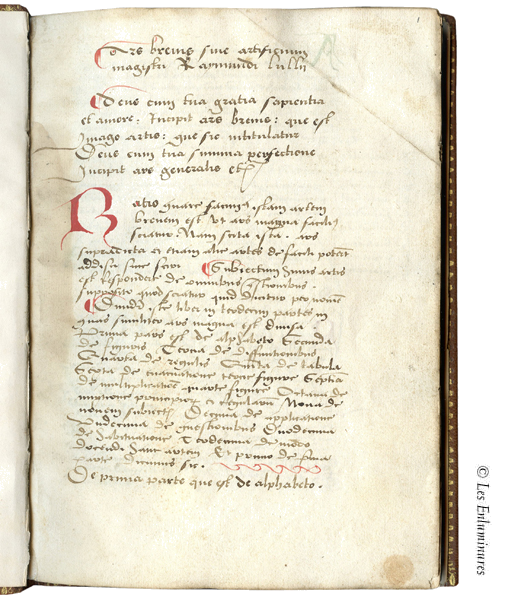 Ars brevis sive artificium
magistri Raymundi lullii
Deus cum tua gratia sapientia
et amore: Incipit ars brevis: que est
Imago artis: que sic intitulatur
Deus cum tua summa perfectione
Incipit ars generalis etc
Ratio quare facimus istam artem
brevem est ut ars magna facilius
sciatur Nam scita ista ars
supradicta et etiam alie artes de facili poterunt
addisci sive sciri Subiectum huius artis
est respondere de omnibus questionibus
supposito quod sciatur quid dicatur per nomen
Dividitur iste liber in tredecim partes in
quas similiter ars magna est divisa
Prima pars est de alphabeto Secunda
de figuris Tercia de diffinitionibus
Quarta de regulis Quinta de tabula
Sexta de evacuatione tercie figure Septima
de multiplicatione quarte figure Octava de
mixtione principiorum et regularum Nona de
novem subiectis Decima de applicatione
Undecima de questionibus Duodecima
de habituatione Tredecima de modo
docendi hanc artem Et primo de prima
parte dicimus sic.
De prima parte que est de alphabeto.
© Les Enluminures